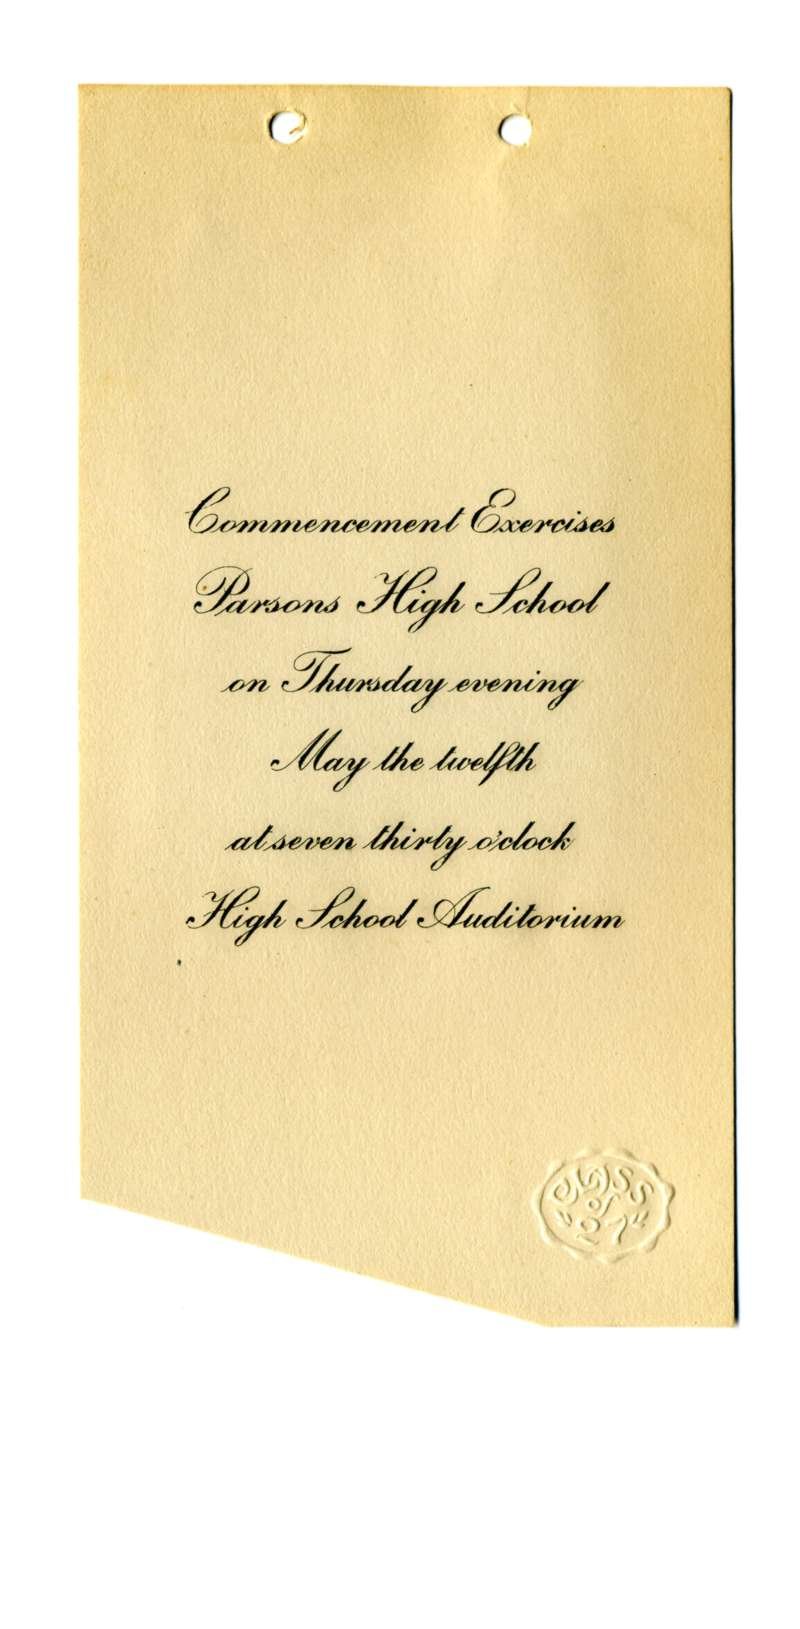 Commencement Exercises
Parsons High School
on Thursday evening
May the twelfth
at seven thirty o'clock
High School Auditorium
Class
of
"27"